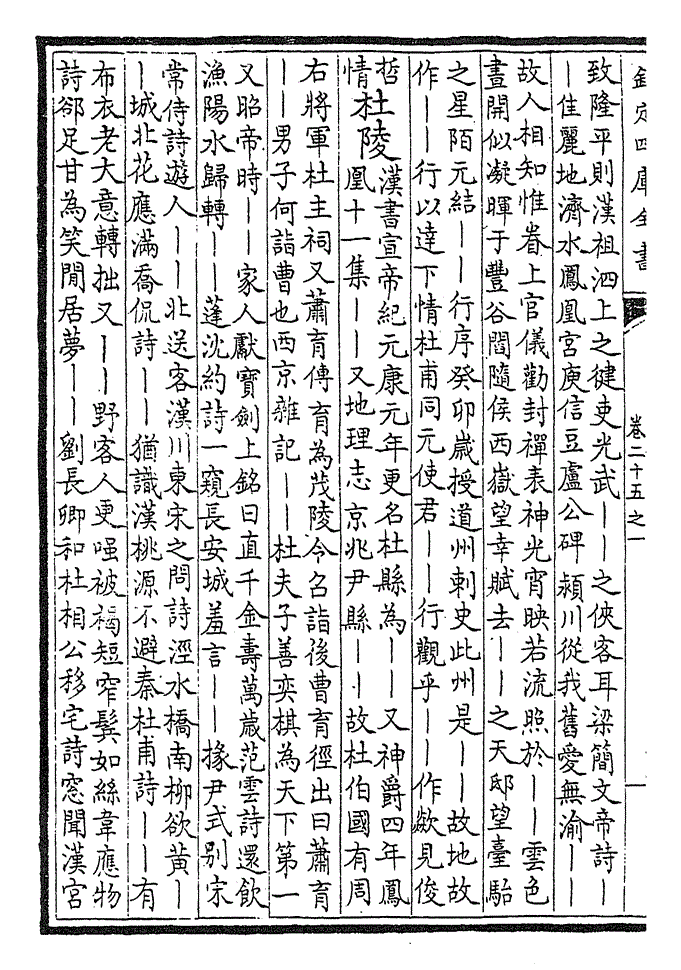 欽定四庫全書
卷二十五之一
致隆平則漢祖泗上之健吏光武――之俠客耳梁簡文帝詩――
――佳麗地濟水鳳凰宮庾信豆盧公碑潁川從我舊愛無渝――
故人相知惟眷上官儀勸封禪表神光宵映若流照於――雲色
晝開似凝暉于豐谷閻隨侯西嶽望幸賦去――之天邸望臺駘
之星陌元結――行序癸卯歲授道州刺史此州是――故地故
作――行以達下情杜甫同元使君――行觀乎――作歘見俊
哲
情
杜陵
漢書宣帝紀元康元年更名杜縣為――又神爵四年鳳
凰十一集――又地理志京兆尹縣――故杜伯國有周
右將軍杜主祠又蕭育傳育為茂陵令召詣後曹育徑出曰蕭育
――男子何詣曹也西京雜記――杜夫子善奕棋為天下第一
又昭帝時――家人獻寶劍上銘曰直千金壽萬歲范雲詩還飲
漁陽水歸轉――蓬沈約詩一窺長安城羞言――掾尹式别宋
常侍詩遊人――北送客漢川東宋之問詩涇水橋南柳欲黄――
――城北花應滿喬侃詩――猶識漢桃源不避秦杜甫詩――有
布衣老大意轉拙又――野客人更嗤被褐短窄鬢如絲韋應物
詩郤足甘為笑閒居夢――劉長卿和杜相公移宅詩窓聞漢宮